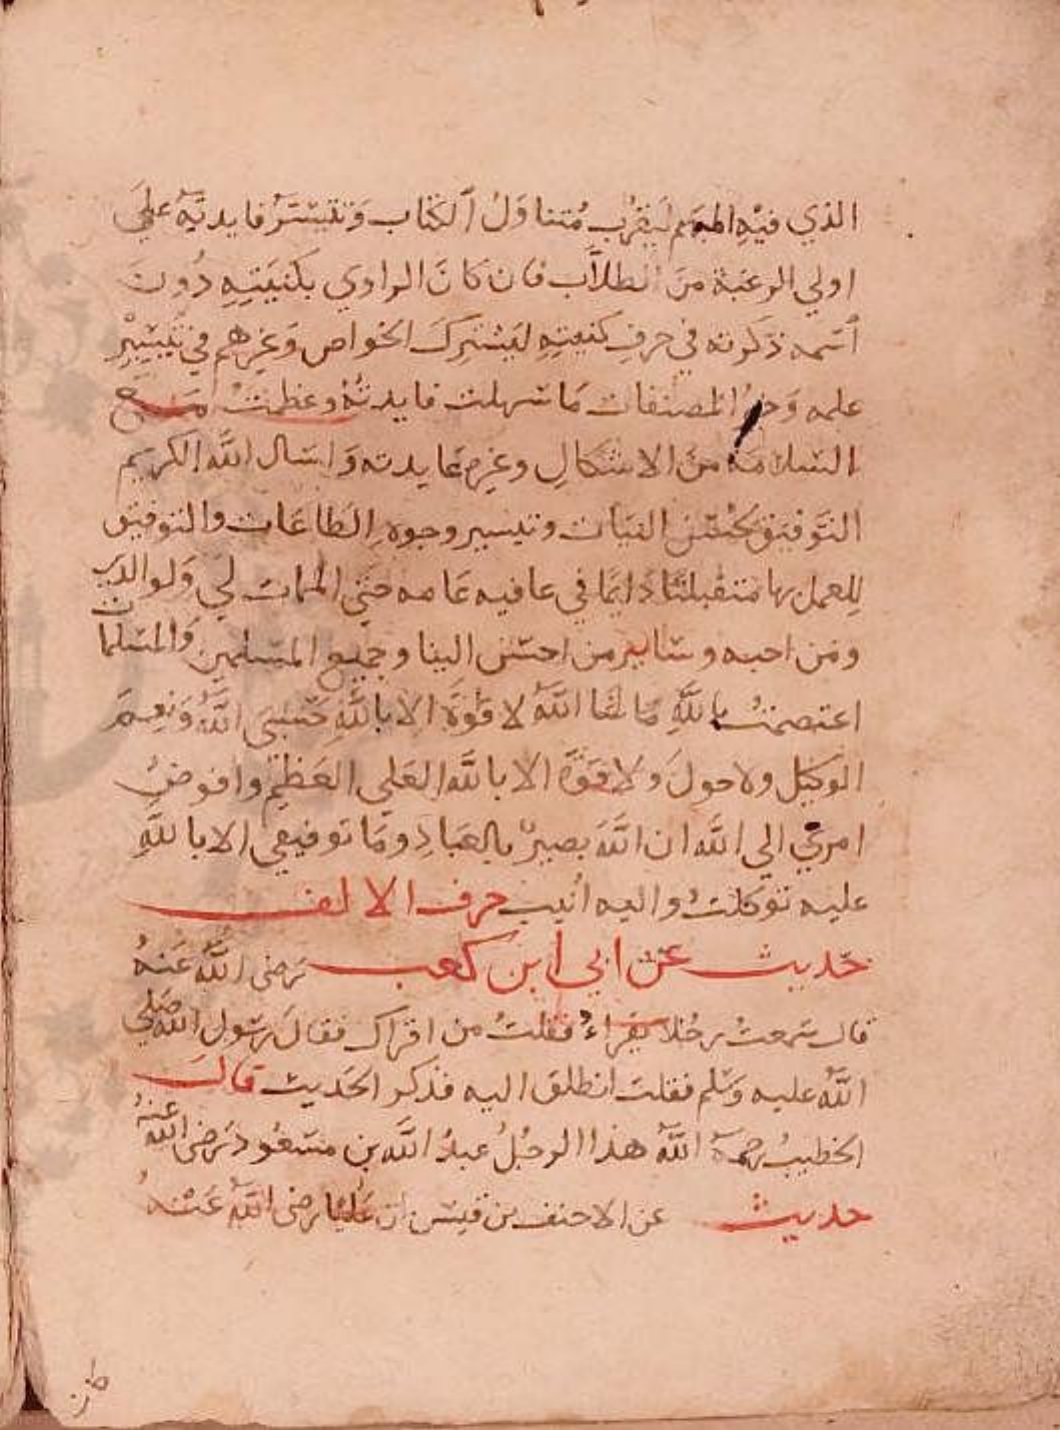 الذي فيْهِ المبهَم ليَقرُب مُتناوَلُ ٱلكتاب وَتتيسَّرُ فايدتُهُ علىَ
اولي الرغبَة منَ الطلاَّب فان كانَ الراوي بكنيَتِهِ دُونَ
ٱسمه ذكرته في حرفِ كنيتِهِ ليَشتركَ الخواص وَغيرهم في تيَسِيْرِ
علمه وَخيرُ المصنفات مَا سَهلت فايدتُهُ وعظمتْ مَع
السَلامَة منَ الاشكالِ وغيرهِ عَايدته وَاسَال اللَّه الكريم
التَّوفيق بحُسْن النيَات وتيسير وجوهِ الطاعَات والتوفيق
لِلعمل بها متقبلتًا دَايمًا في عافيه عَامه حَتي الممات لي وَلوالديَ
ومَن احبه وسَاير من احسَن الينا وجميع المسَلمين وَالمسَلمات
اعتصمتُ باللَّهِ مَا شَا اللَّهُ لا قوَّةَ الا باللَّهِ حَسْبيَ اللَّهُ وَنعِمَ
الوكيل ولا حولَ ولا قوَّة الا باللَّه العَلي العَظيْم وافوضُ
امري الي اللَّه ان اللَّهَ بصيرٌ بالعبَادِ ومَا توفيقي الا باللَّهِ
عليه توكلتُ واليه انيب حرف الالف
حَديث عَن ابي ابن كعب رَضى اللَّهُ عَنهُ
قال سَمعتُ رجُلا يقراءُ فقلتُ من اقراك فقالَ رسَول اللَّه صَلي
اللَّهُ عليه وَسَلم فقلت انطلق اليه فذكر الحَديث قالَ
الخطيبُ رحمَهُ اللَّهُ هذا الرجُلُ عبدُ اللَّهِ بن مسَعُود رَضى اللَّهُ عنهُ
حديث عن الاحنف بن قيسَ ان عَليًا رضى اللَّهُ عَنْهُ